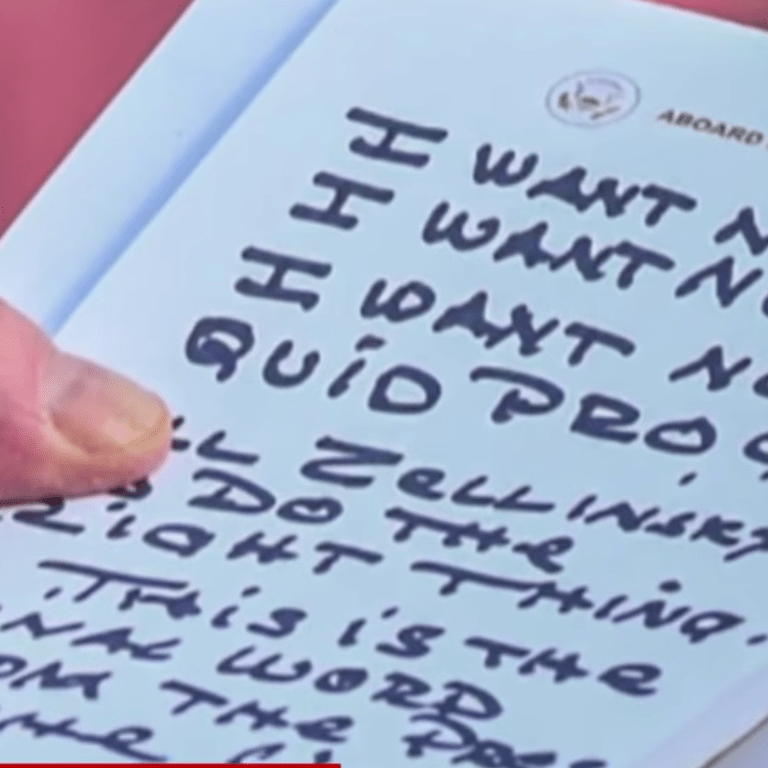 ABOARD
I WANT N
I WANT NO
I WANT NO
QUID PRO Q
LL ZELLINSKY
DO THE
RIGHT THING.
THIS IS THE
NAL WORD
OM THE PRES
THE